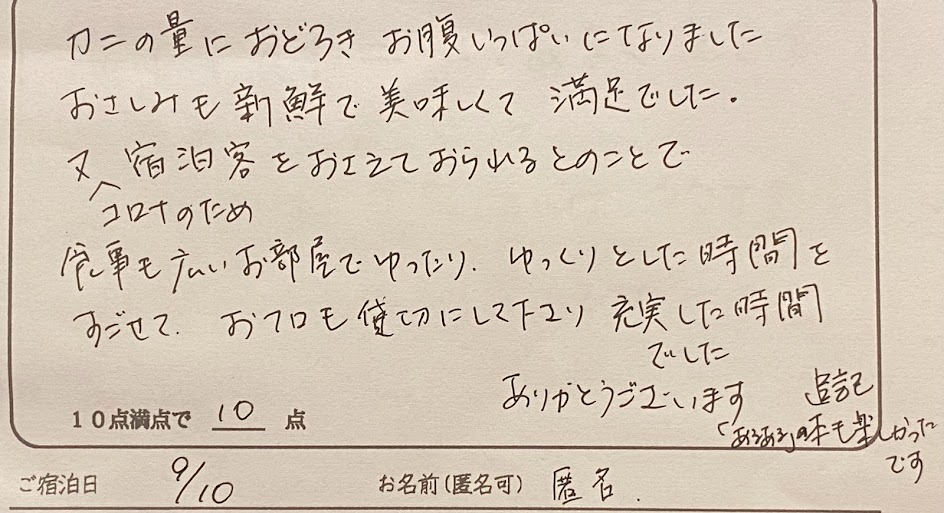 カニの量におどろき お腹いっぱいになりました
おさしみも新鮮で美味しくて 満足でした。
又 宿泊客をおさえておられるとのことで
コロナのため
食事も広いお部屋でゆったり、ゆっくりとした時間を
すごせて、おフロも貸切にして下さり 充実した時間
でした
ありがとうございます
追記
「あるある」の本も楽しかった
です
10点満点で 10 点
ご宿泊日 9/10 お名前(匿名可) 匿名.